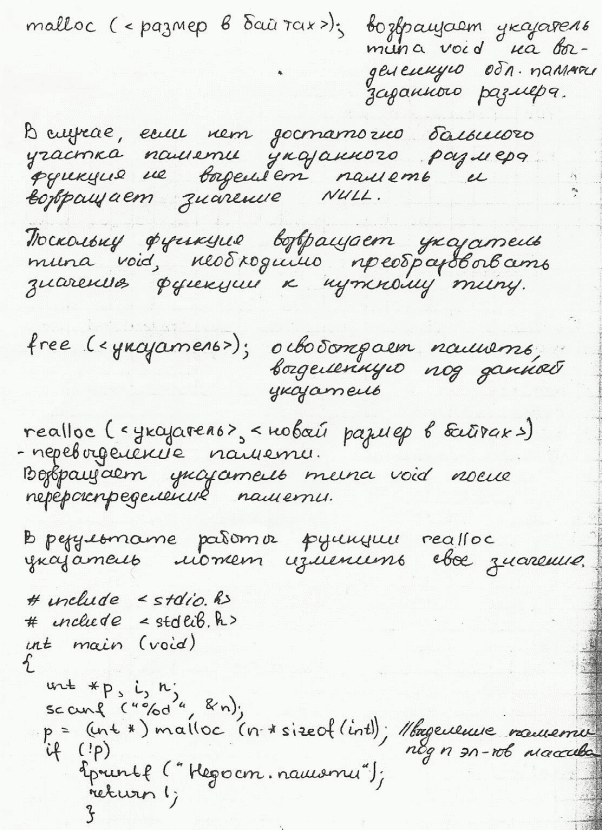 malloc (<размер в байтах>); возвращает указатель
типа void на вы-
деленную обл. памяти
заданного размера.
В случае, если нет достаточно большого
участка памяти указанного размера
функция не выделяет память и
возвращает значение NULL.
Поскольку функция возвращает указатель
типа void, необходимо преобразовывать
значения функции к нужному типу.
free (<указатель>); освобождает память,
выделенную под данной
указатель
realloc (<указатель>, <новый размер в байтах>)
- перевыделение памяти.
Возвращает указатель типа void после
перераспределение памяти.
В результате работы функции realloc
указатель может изменить свое значение.
# include <stdio.h>
# include <stdlib.h>
int main (void)
{
int *p, i, n;
scanf ("%d", &n);
p = (int*) malloc (n * sizeof(int)); //выделение памяти
if (!p) под n эл-тов массива
{printf ("Недост. памяти");
return 1;
}